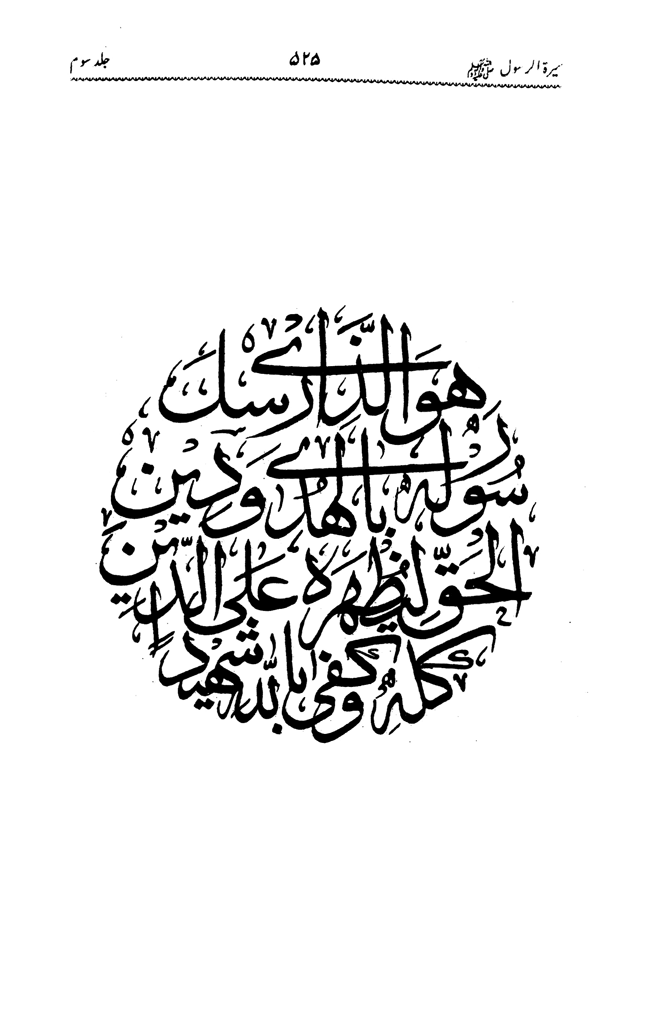 سیرۃ الرسول ﷺ ۵۲۵ جلد سوم
هُوَ الَّذِي أَرْسَلَ
رَسُولَهُ بِالْهُدَى وَدِينِ
الْحَقِّ لِيُظْهِرَهُ عَلَى الدِّينِ
كُلِّهِ وَكَفَى بِاللَّهِ شَهِيدًا